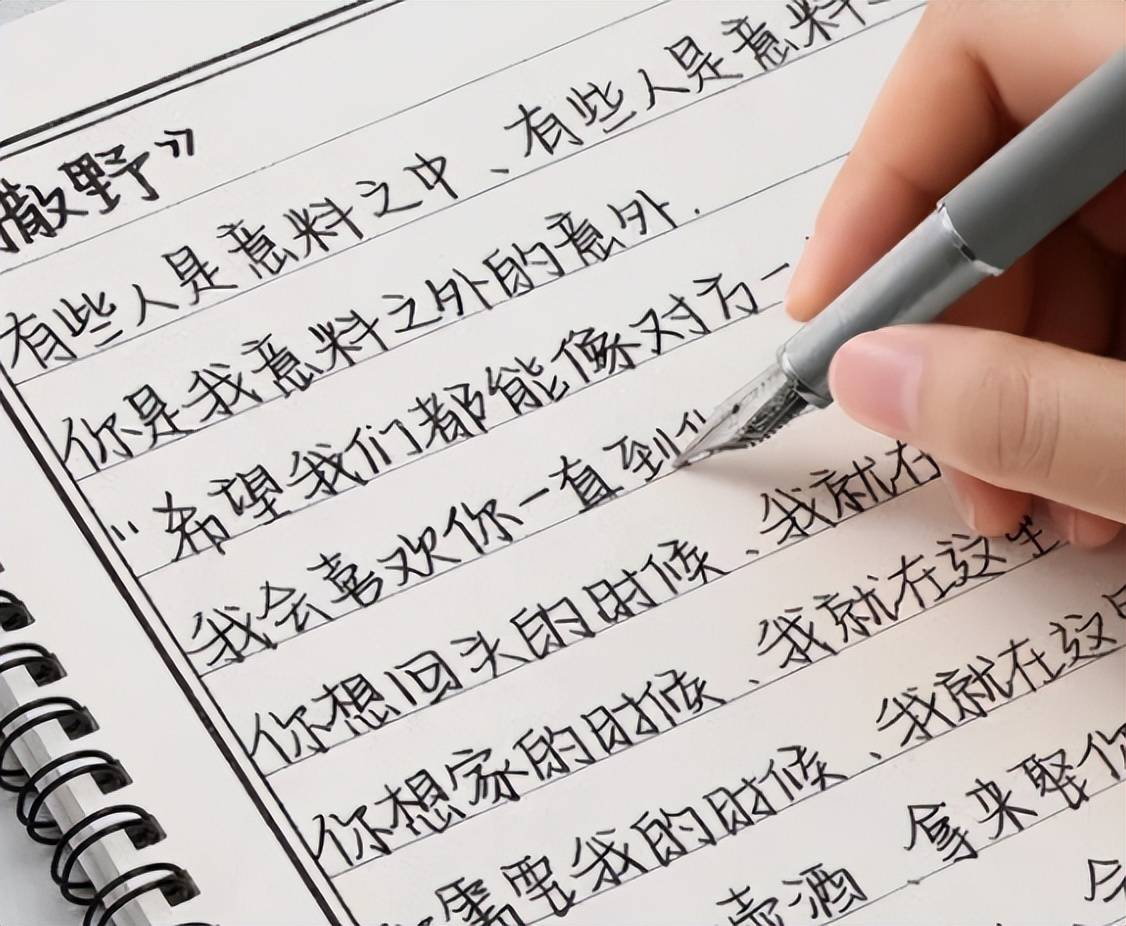 撒野》
有些人是意料之中、有些人是意料
你是我意料之外的意外.
“希望我们都能像对方一
我会喜欢你一直到
你想回头的时候、我就在
你想家的时候、我就在这里
需要我的时候、我就在这
壶酒 拿来娶你